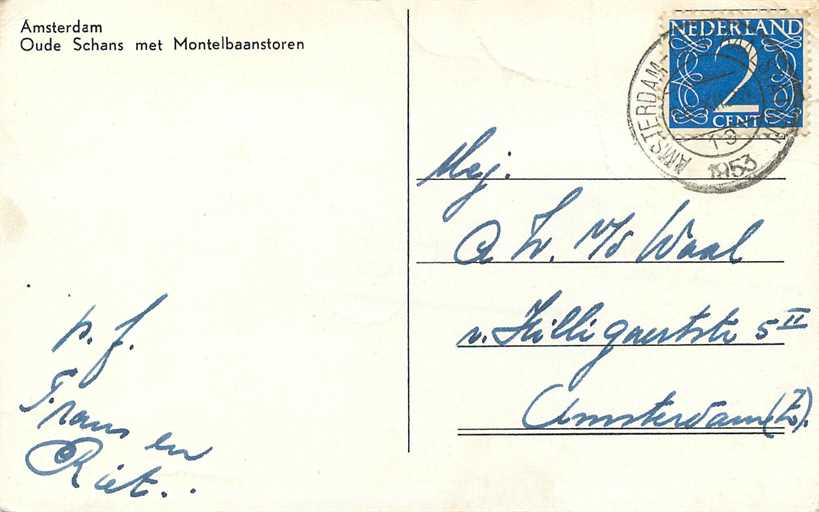 Amsterdam
Oude Schans met Montelbaanstoren
NEDERLAND
2
CENT
AMSTERDAM
19
1953
Mej.
A W. v/d Waal
v. Hilligaertstr 5 II
Amsterdam (Z).
p. f.
Frans en
Riet..